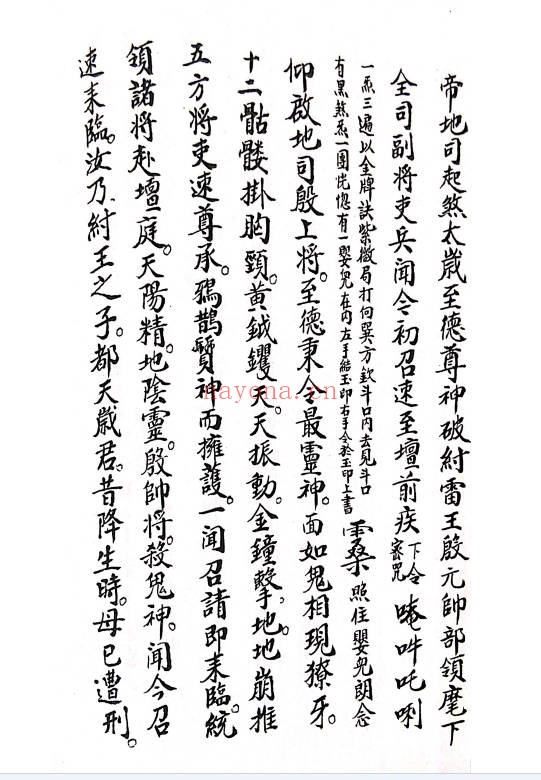 帝地司起煞太歲至德尊神破紂雷王殷元帥部領麾下
全司副將吏兵聞令初召速至壇前疾下令密咒唵吽吒唎
一炁三遍以金牌訣紫微局打向巽方欽斗口内去見斗口
有黑煞炁一團恍惚有一嬰兒在内左手結玉印右手令於玉印上書
照住嬰兒朗念
仰啟地司殷上將。至德秉令最靈神。面如鬼相現獠牙。
十二骷髏掛胸頸。黄鉞钁天天振動。金鐘擊地地崩摧
五方將吏速尊承。鴉鵲賢神而擁護。一聞召請即来臨。統
領諸將赴壇庭。天陽精。地陰靈。殷帥將。殺鬼神。聞今召
速来臨。汝乃紂王之子。都天歲君。昔降生時。母已遭刑。
nayona.cn